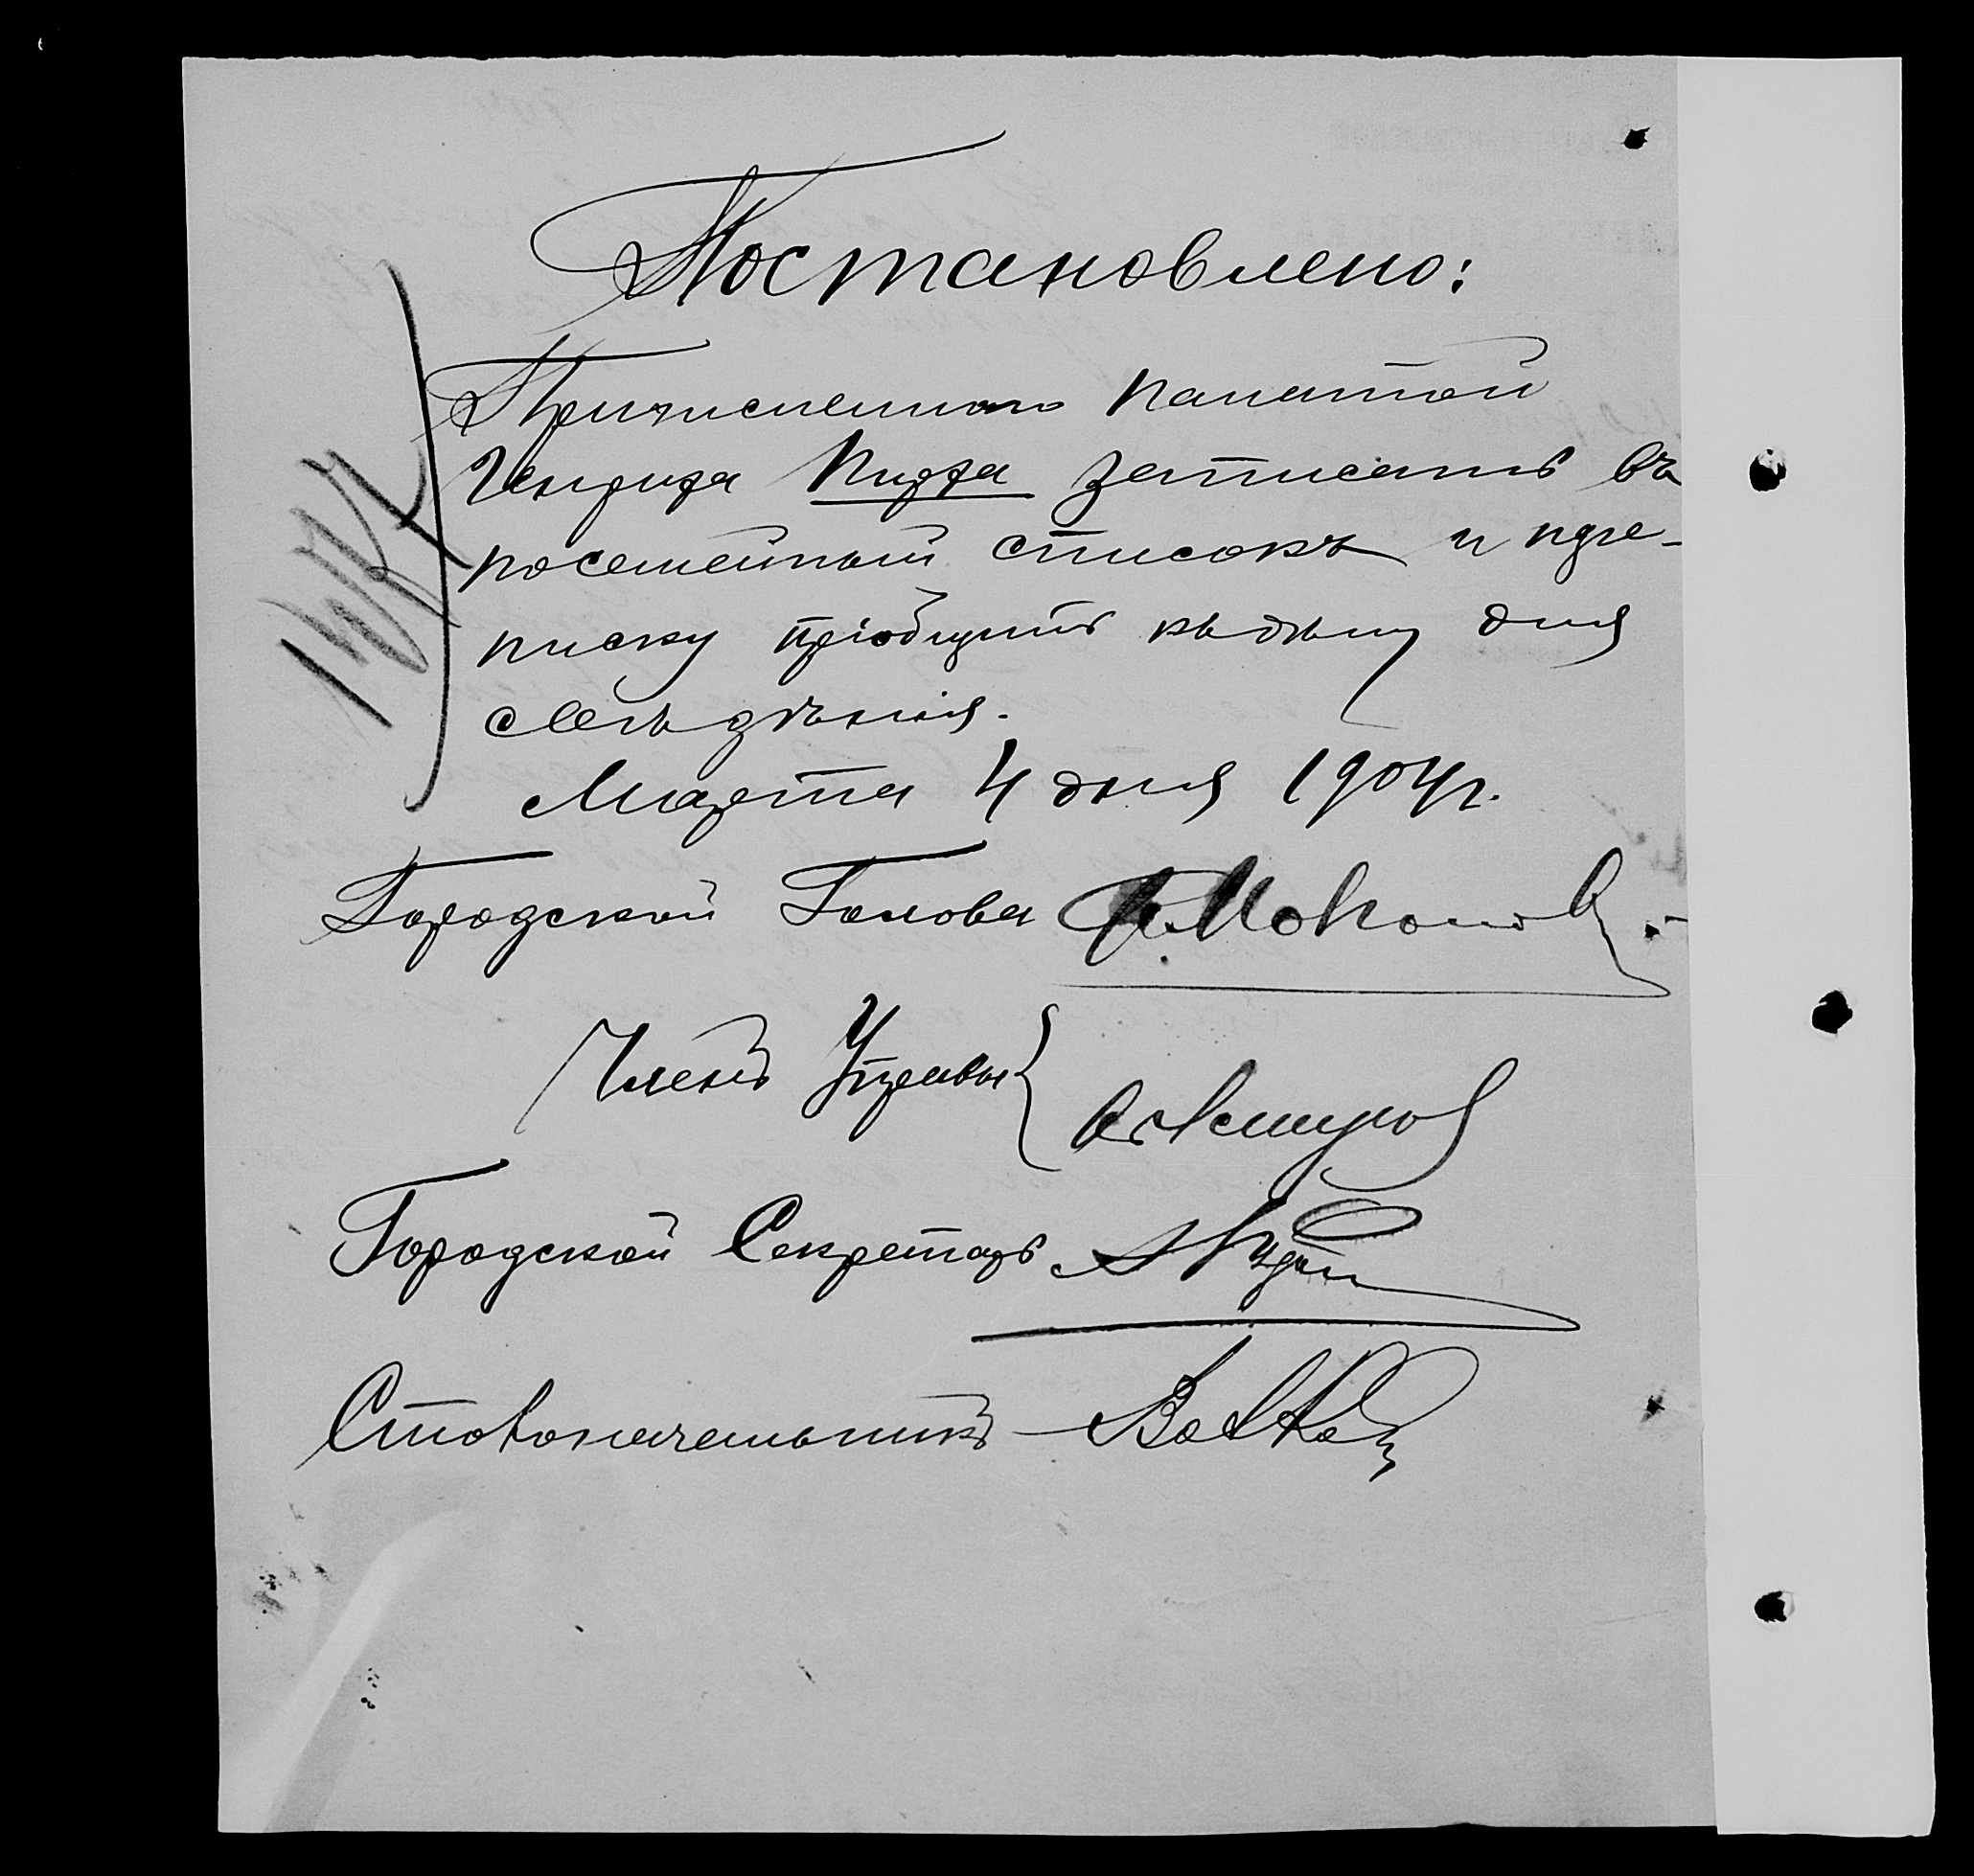 Постановлено:
Причисленного палатой
Генриха записать въ
посемейный списокъ и пере-
писку пріобщить къ дѣлу для
свѣдѣнія.
Марта 4 дня 1904 г.
Городской Голова
Членъ Управы
Городской Секретарь
Столоначальникъ